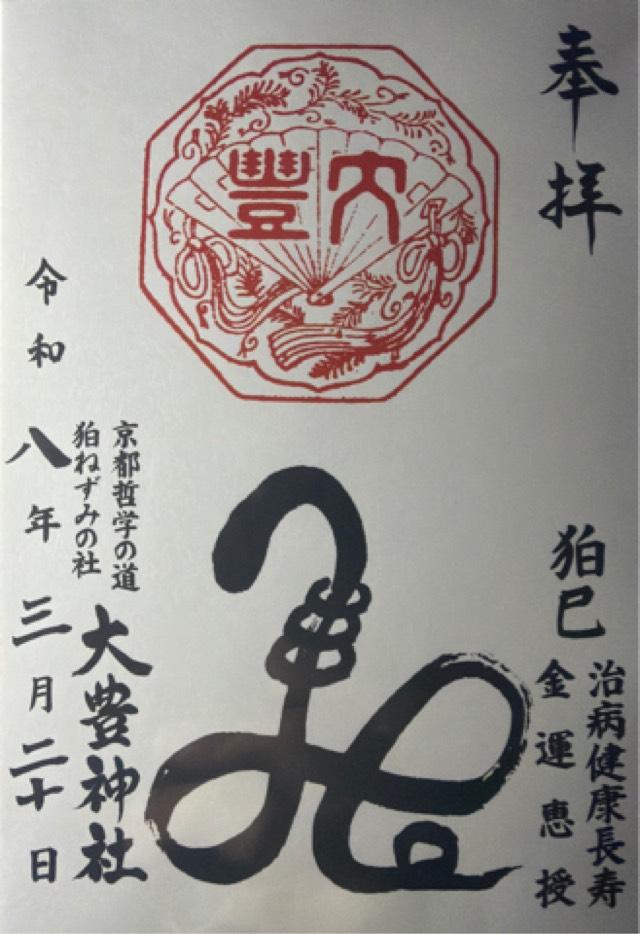 奉拝
狛巳
治病健康長寿
金運恵授
大豊
京都哲学の道
狛ねずみの社
大豊神社
令和八年三月二十日